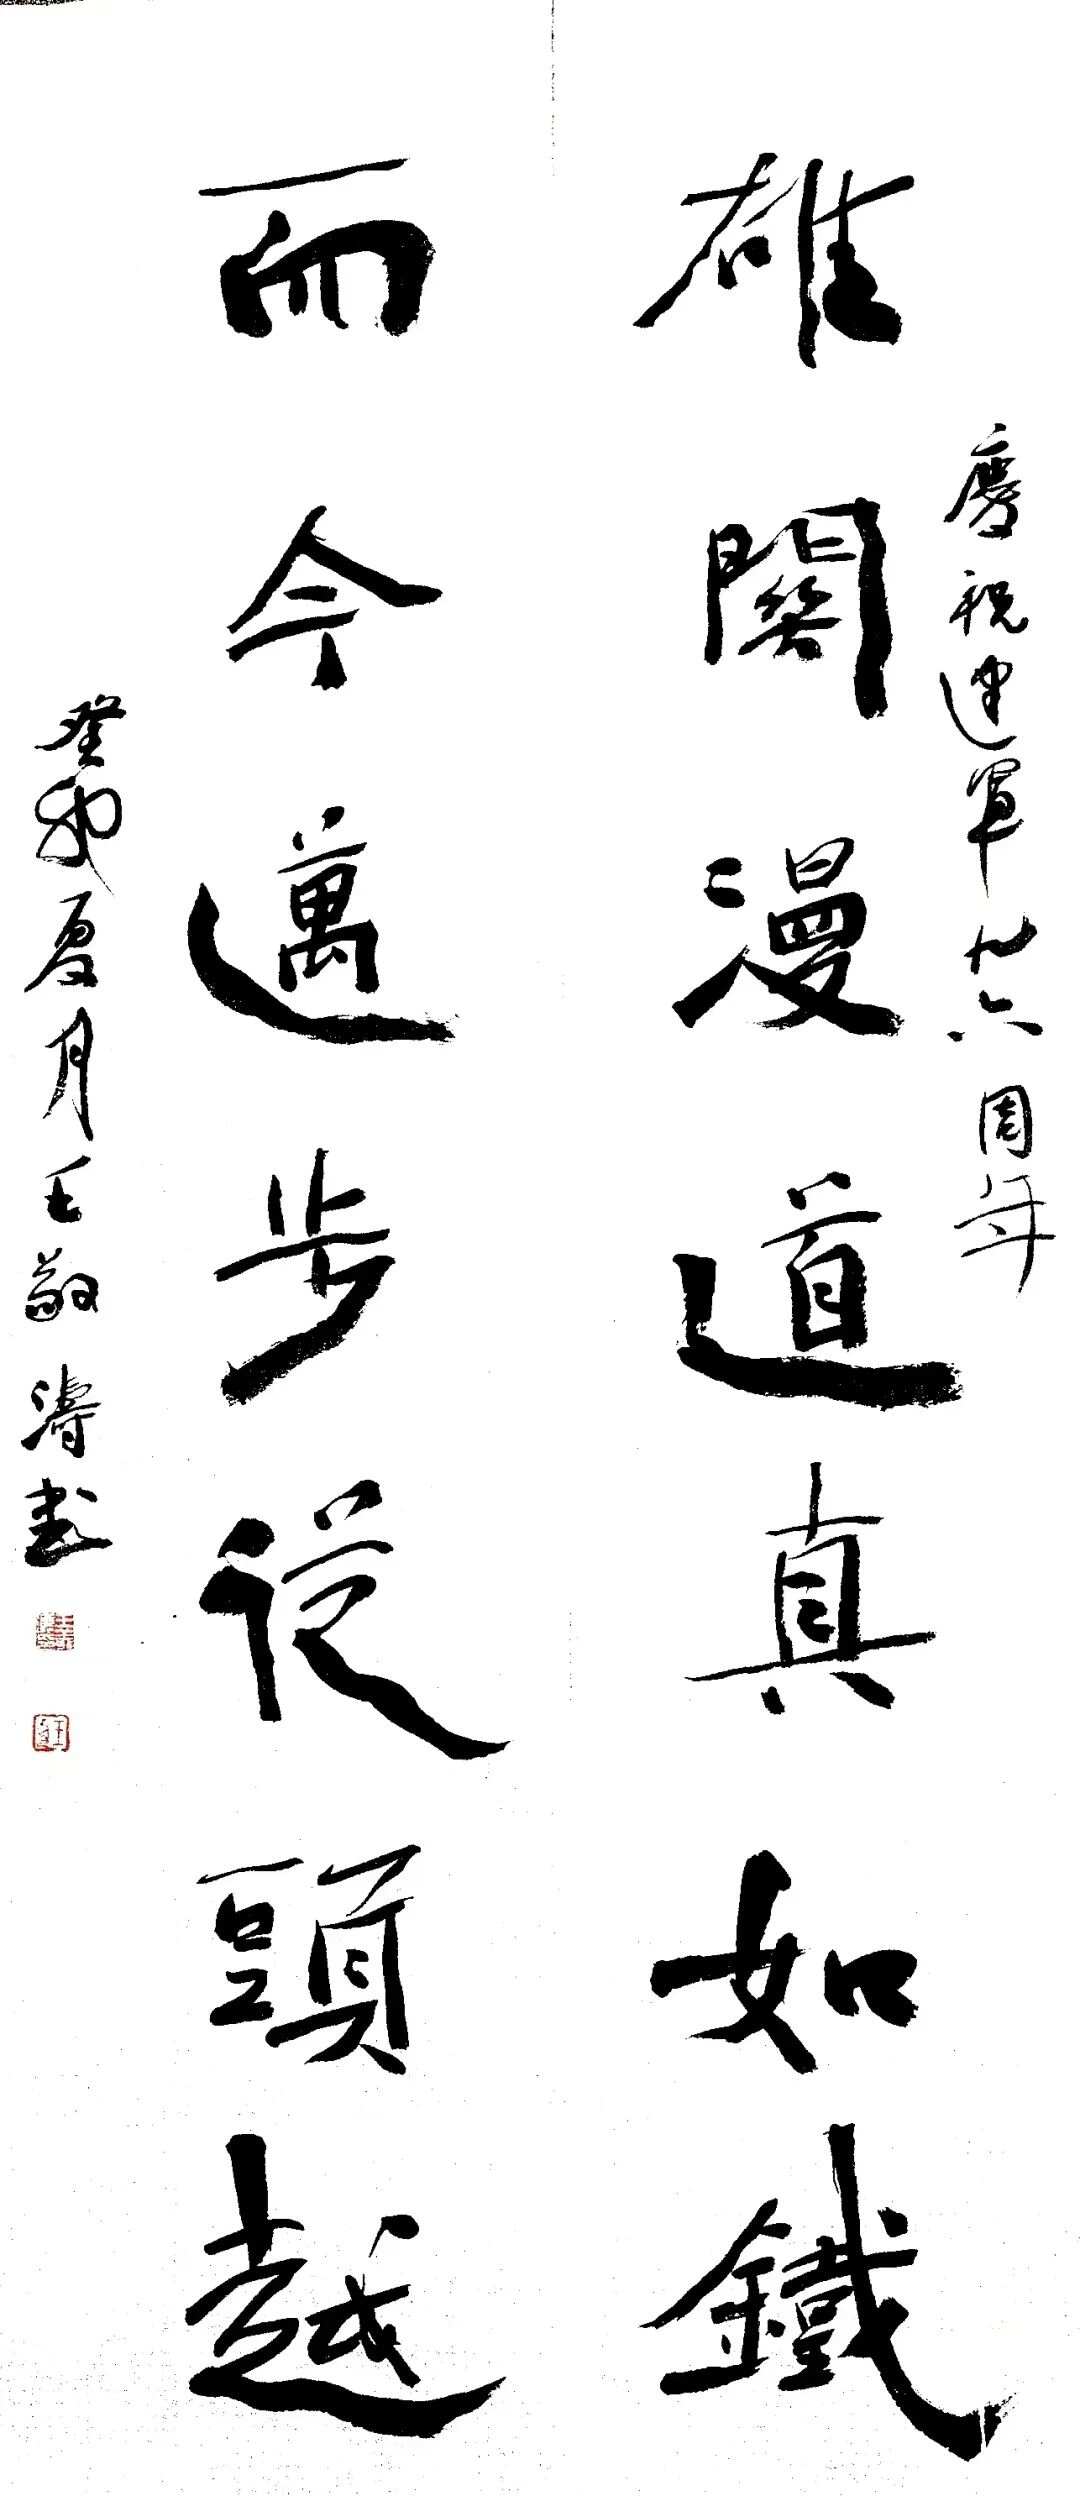 慶祝建軍九六周年
雄關漫道真如鐵
而今邁步從頭越
癸卯夏月王敬濤書